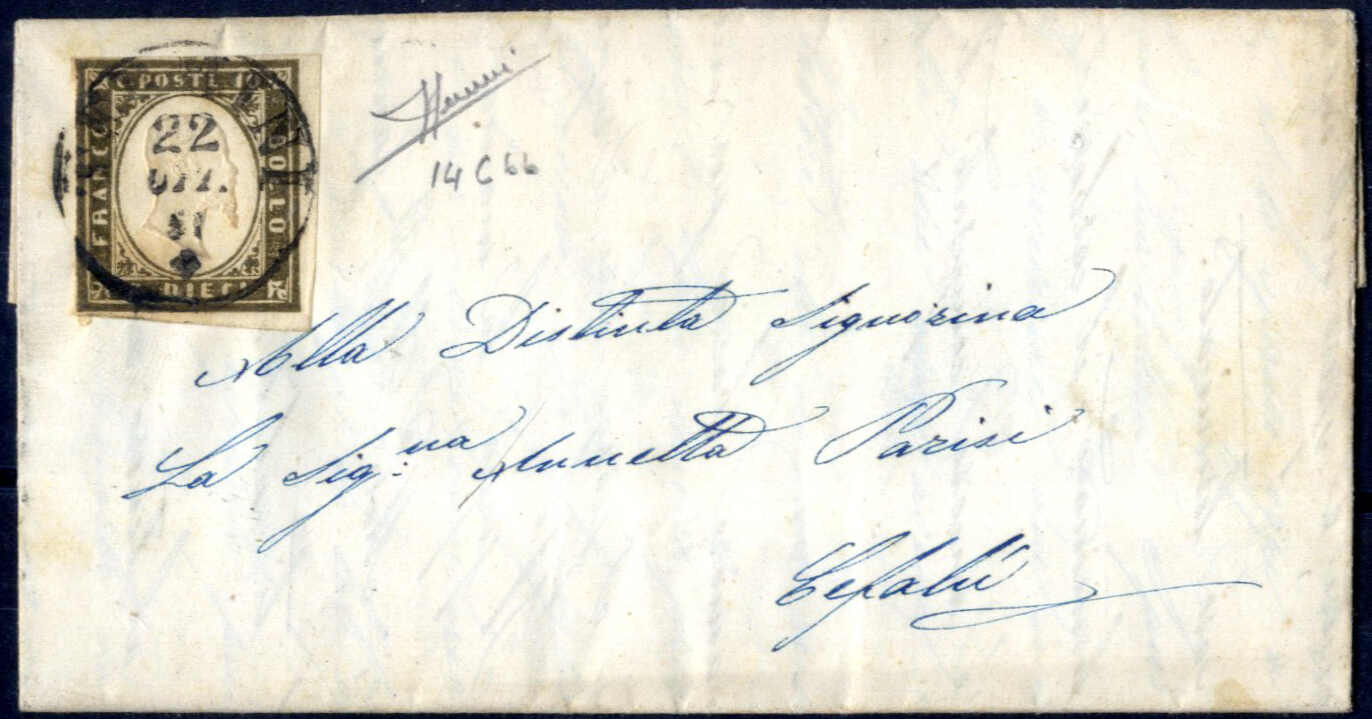 C. POSTE 10
FRANCO
BOLLO
C. DIECI
22
OTT.
61
14 C bb
Alla Distinta Signorina
La Sig:na Annetta Parisi
Cefalù